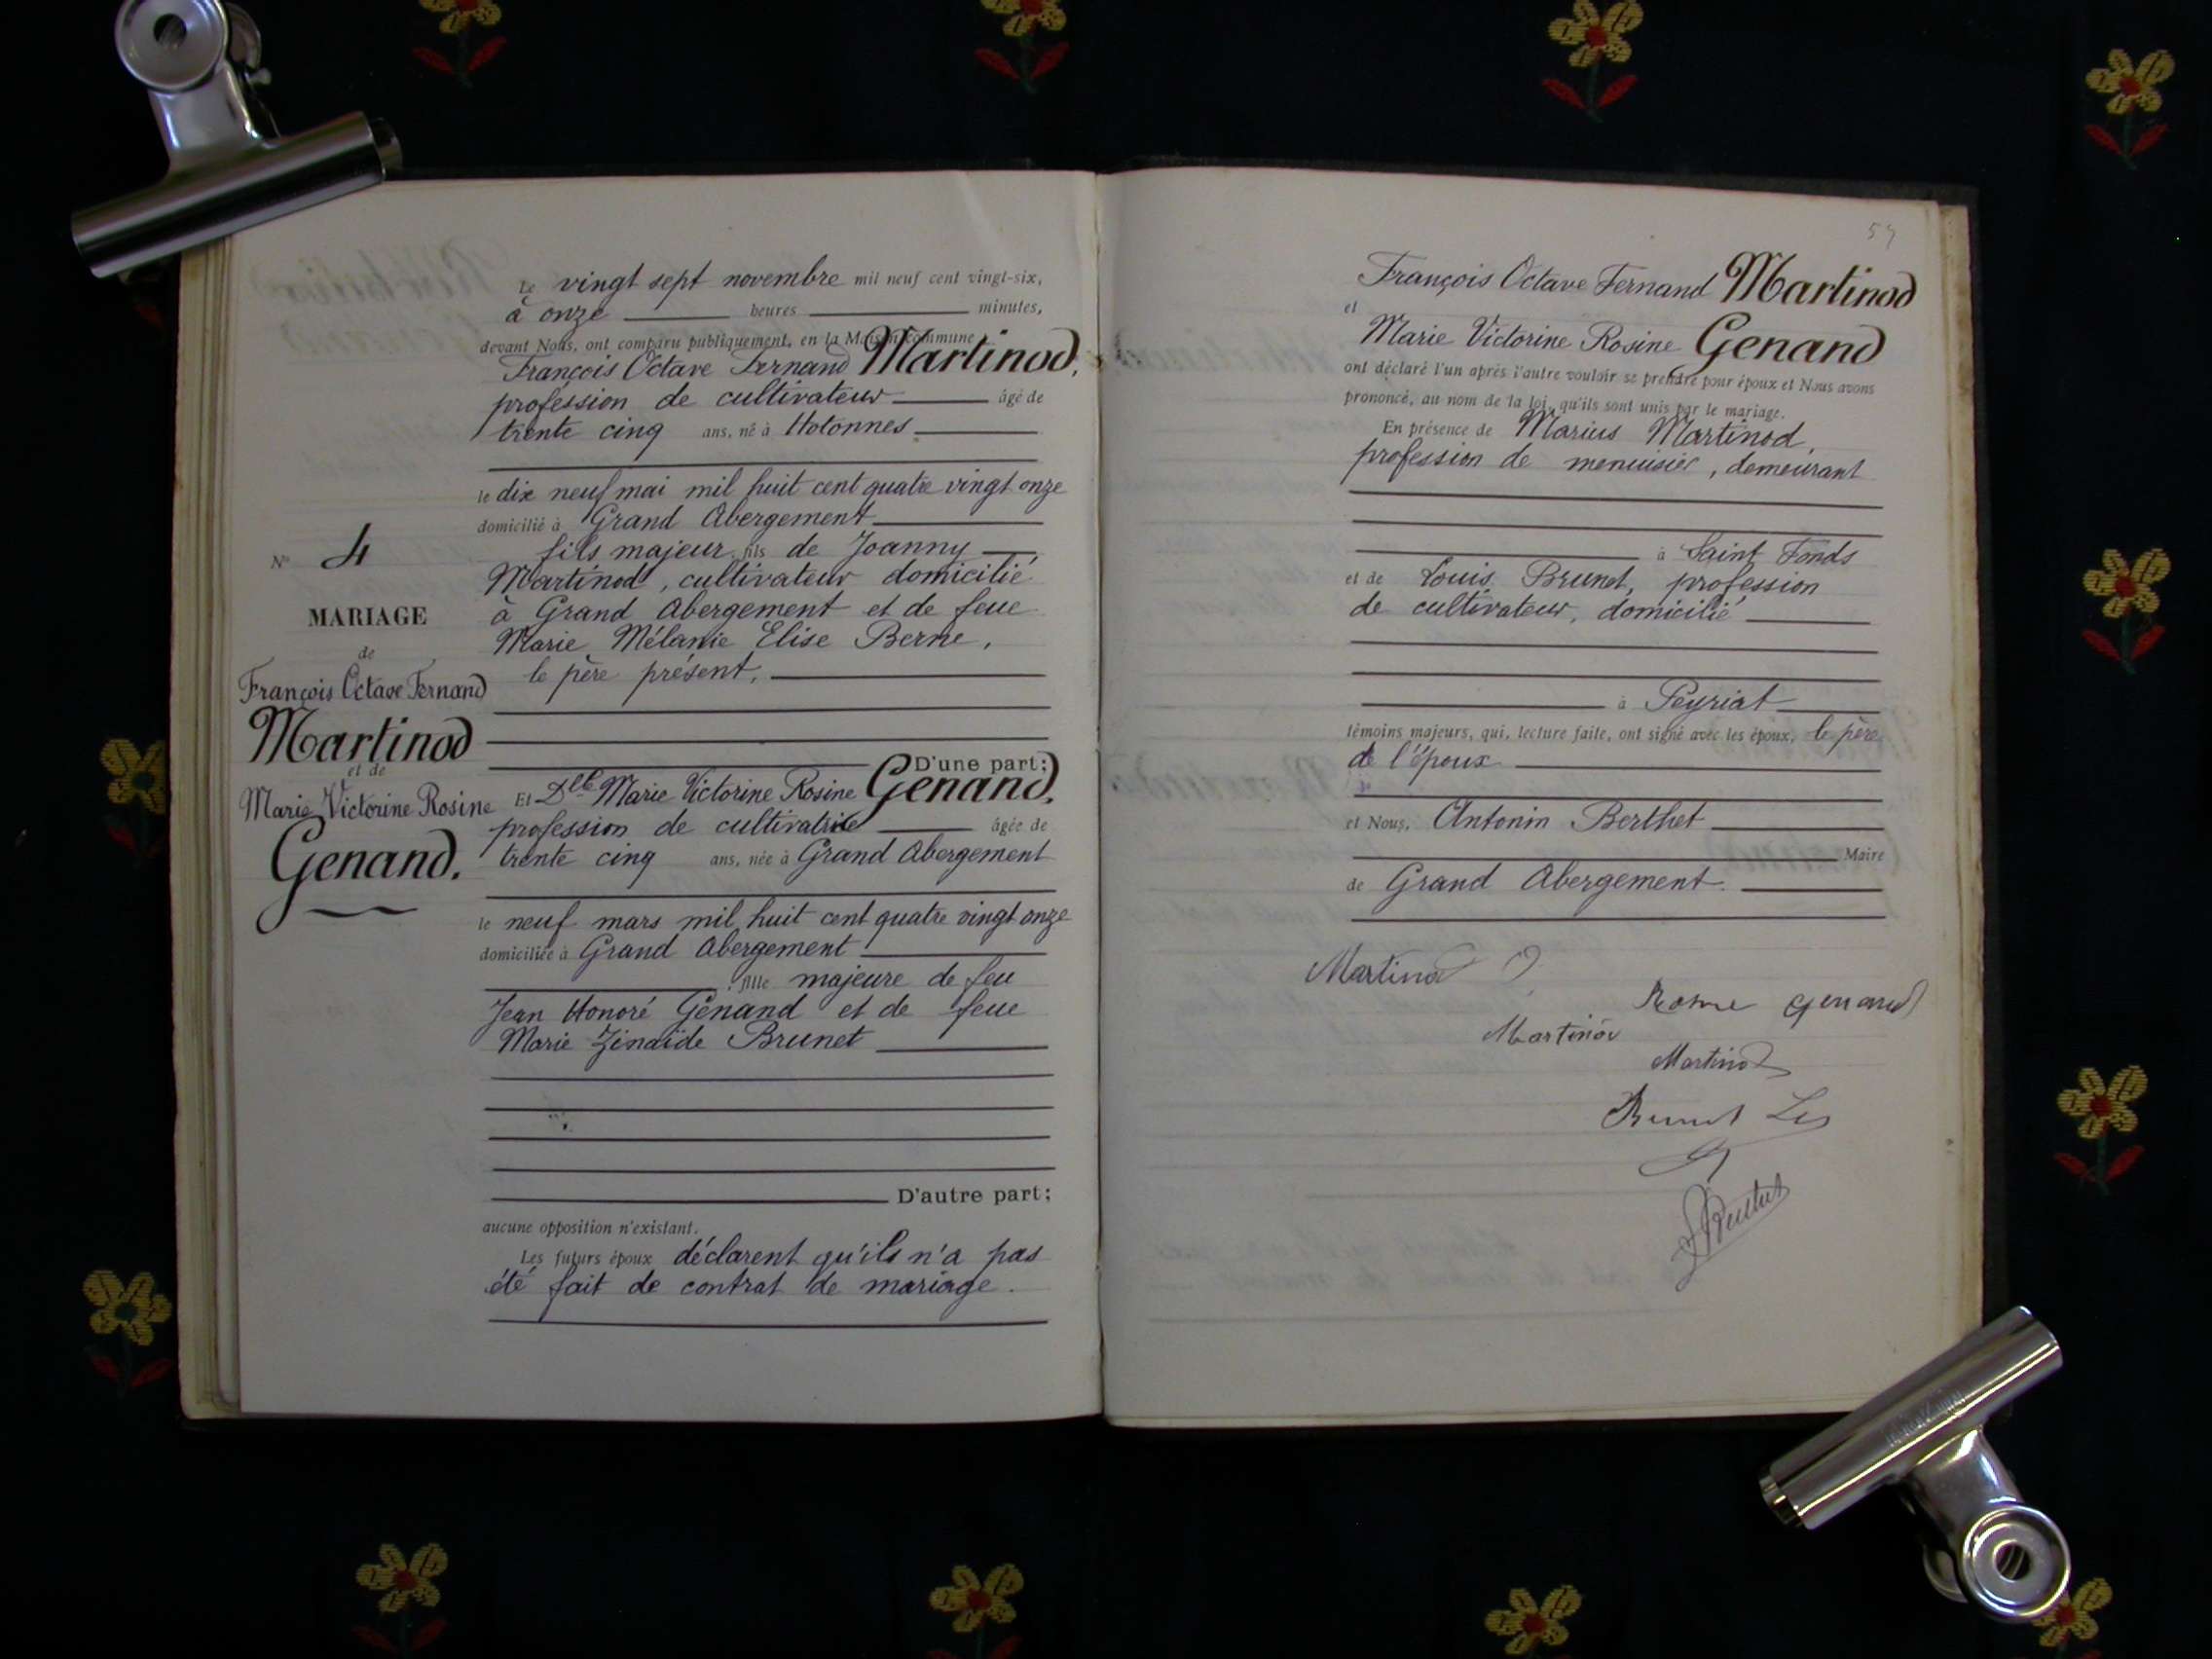 N° 4
MARIAGE
de
François Octave Fernand
Martinod
et de
Marie Victorine Rosine
Genand.
Le vingt sept novembre mil neuf cent vingt-six,
à onze heures minutes,
devant Nous, ont comparu publiquement, en la Maison commune :
François Octave Fernand Martinod,
profession de cultivateur âgé de
trente cinq ans, né à Hotonnes
le dix neuf mai mil huit cent quatre vingt onze
domicilié à Grand Abergement
fils majeur fils de Joanny
Martinod, cultivateur domicilié
à Grand Abergement et de feue
Marie Mélanie Elise Berne,
le père présent,
D'une part;
Et Dlle Marie Victorine Rosine Genand,
profession de cultivatrice âgée de
trente cinq ans, née à Grand Abergement
le neuf mars mil huit cent quatre vingt onze
domiciliée à Grand Abergement
fille majeure de feu
Jean Honoré Genand et de feue
Marie Zénaïde Brunet
D'autre part;
aucune opposition n'existant.
Les futurs époux déclarent qu'ils n'a pas
été fait de contrat de mariage.
59
François Octave Fernand Martinod
et
Marie Victorine Rosine Genand
ont déclaré l'un après l'autre vouloir se prendre pour époux et Nous avons
prononcé, au nom de la loi, qu'ils sont unis par le mariage.
En présence de Marius Martinod,
profession de menuisier, demeurant
à Saint Fonds
et de Louis Brunet, profession
de cultivateur, domicilié
à Peyriat
témoins majeurs, qui, lecture faite, ont signé avec les époux, le père
de l'époux
et Nous, Antonin Berthet
Maire
de Grand Abergement.
Martinod
Rosine Genand
Martinod
Martinod
Brunet